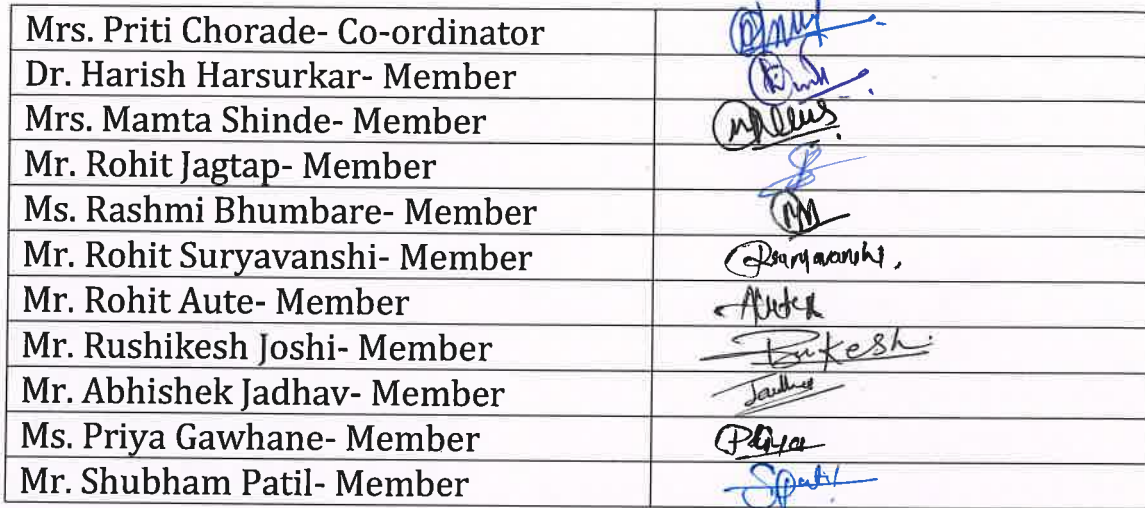 Mrs. Priti Chorade- Co-ordinator
Dr. Harish Harsurkar- Member
Mrs. Mamta Shinde- Member
Mr. Rohit Jagtap- Member
Ms. Rashmi Bhumbare- Member
Mr. Rohit Suryavanshi- Member
Mr. Rohit Aute- Member
Mr. Rushikesh Joshi- Member
Mr. Abhishek Jadhav- Member
Ms. Priya Gawhane- Member Priya
Mr. Shubham Patil- Member SPatil